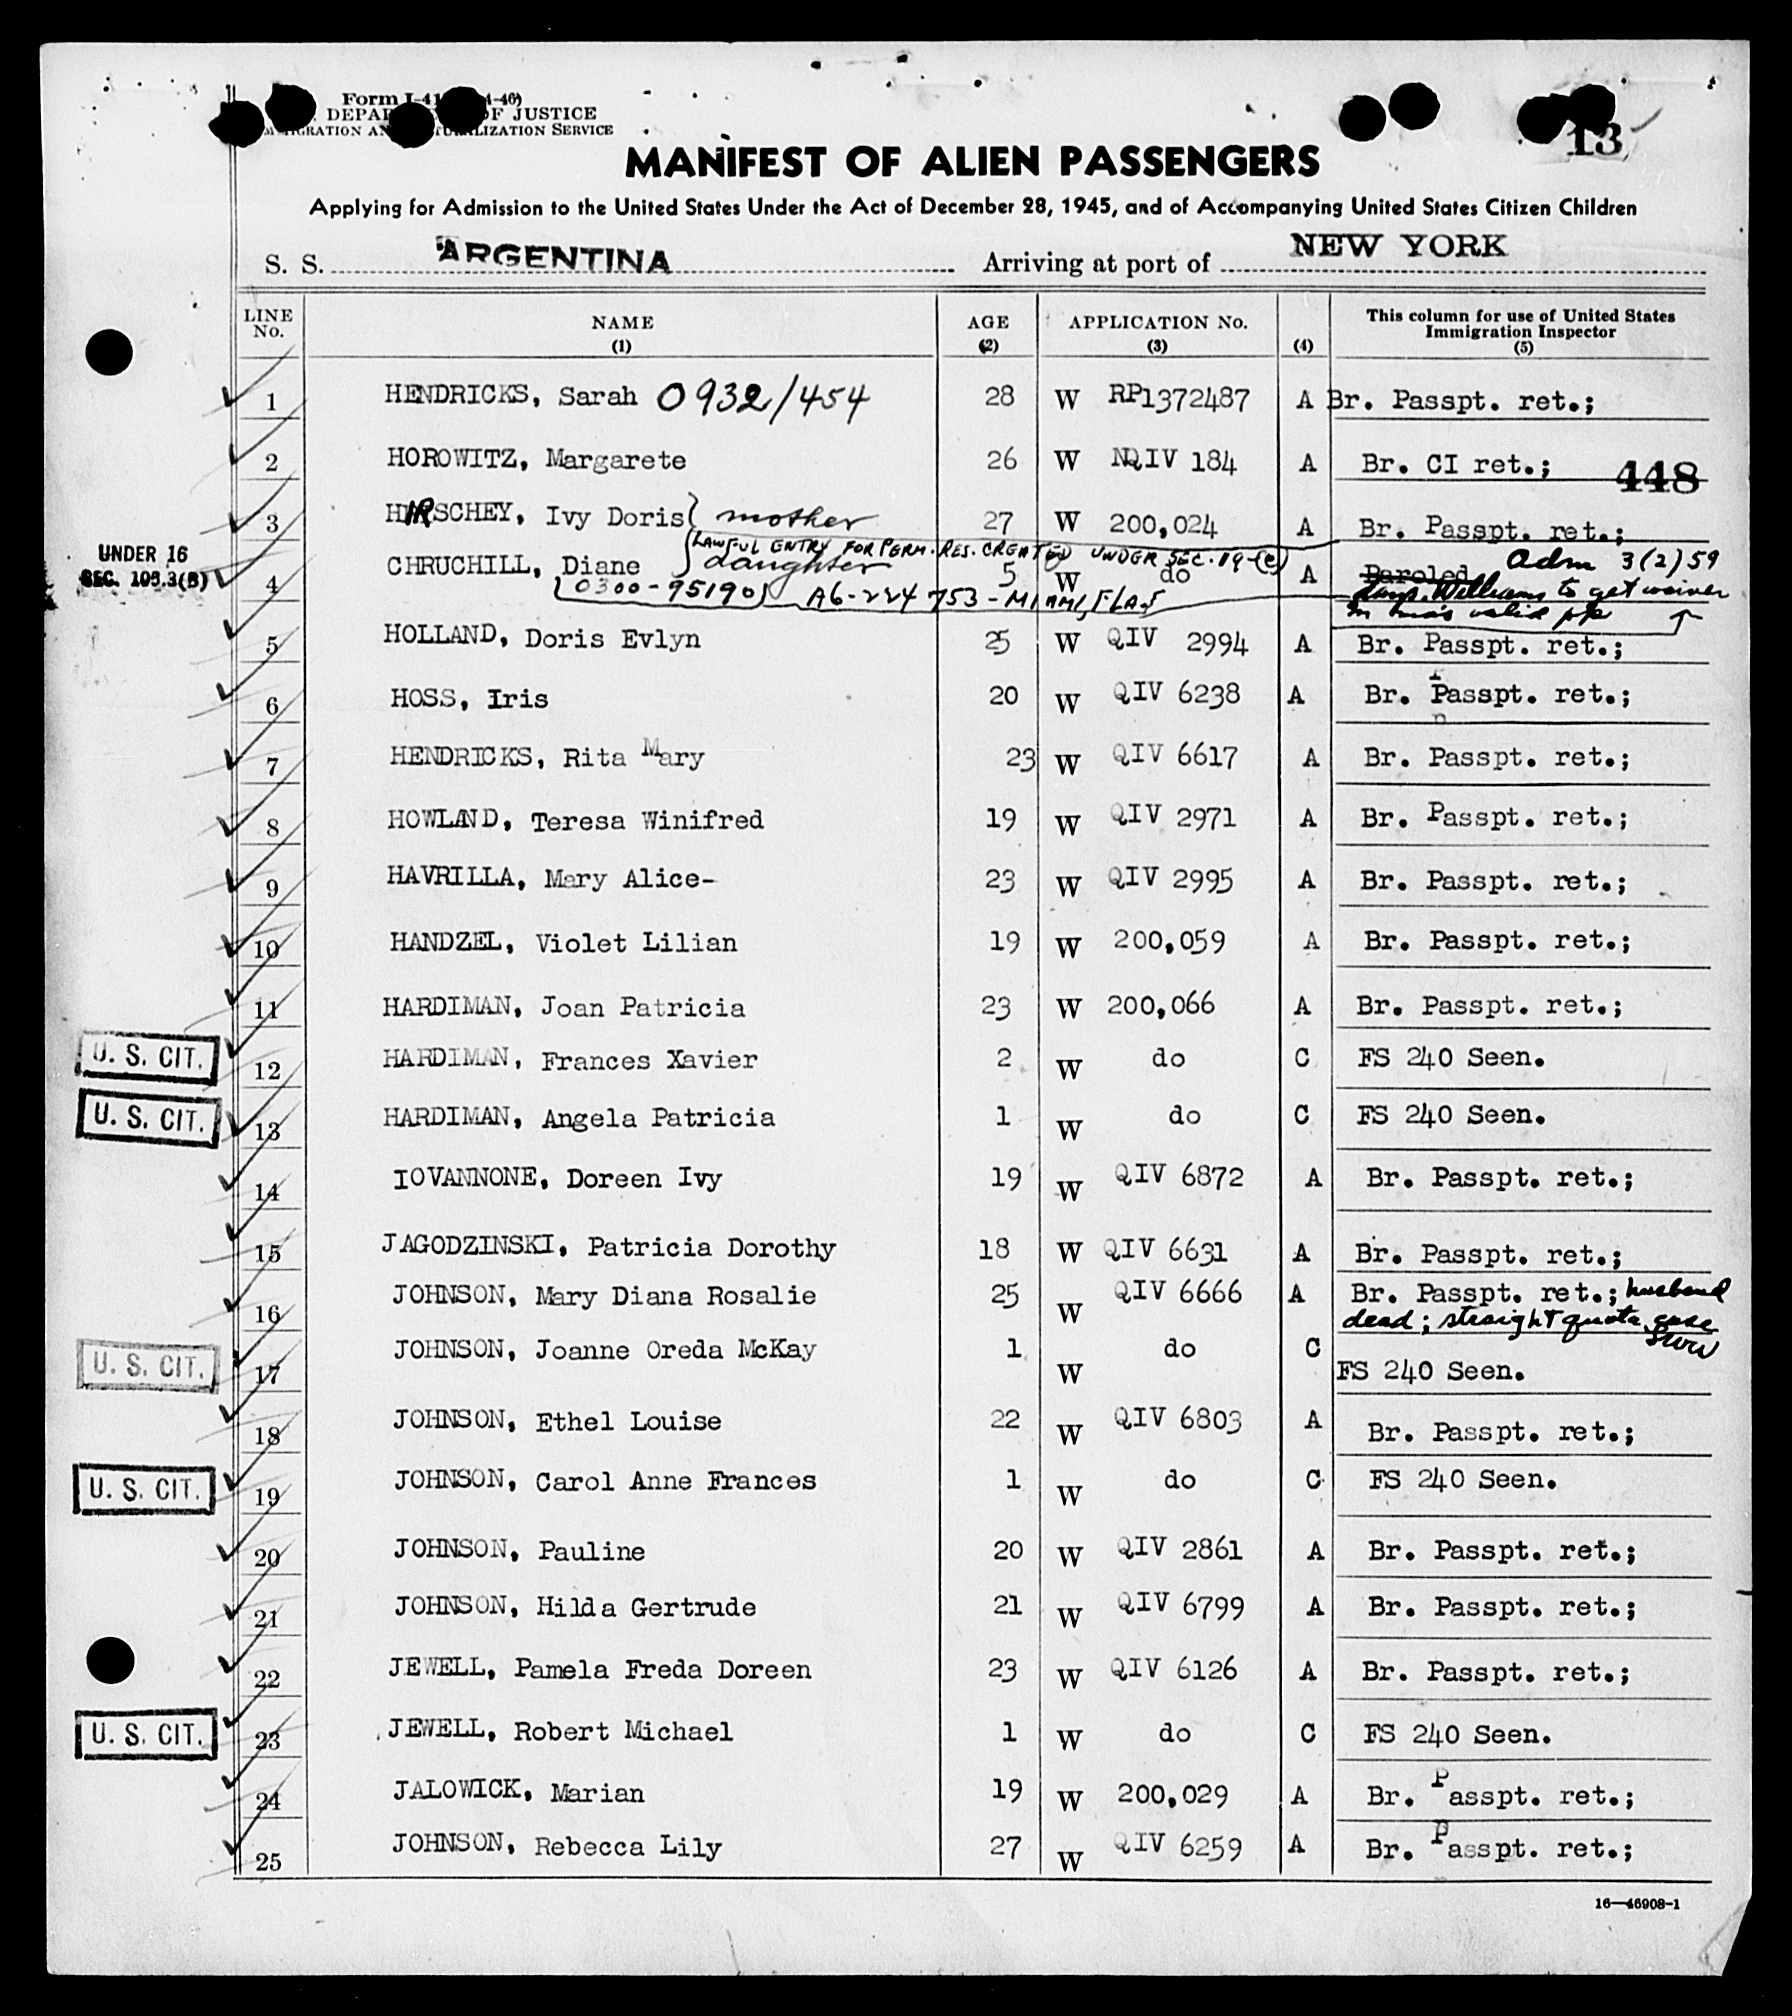 Form I-41 4-46)
DEPAR OF JUSTICE
IGRATION AN TURALIZATION SERVICE
13
MANIFEST OF ALIEN PASSENGERS
Applying for Admission to the United States Under the Act of December 28, 1945, and of Accompanying United States Citizen Children
S. S. ARGENTINA Arriving at port of NEW YORK
LINE No. NAME (1) AGE (2) APPLICATION No. (3) (4) This column for use of United States Immigration Inspector (5)
1 HENDRICKS, Sarah 0932/454 28 W RP1372487 A Br. Passpt. ret.;
2 HOROWITZ, Margarete 26 W NQIV 184 A Br. CI ret.; 448
3 HIRSCHEY, Ivy Doris mother 27 W 200,024 A Br. Passpt. ret.;
LAWFUL ENTRY FOR PERM. RES. CREATED UNDER SEC. 19-(c)
UNDER 16 SEC. 105.3(B) 4 CHRUCHILL, Diane daughter 5 W do A Paroled Adm 3(2)59
0300-95190 A6-224753-MIAMI, FLA. Williams to get waiver
valid p/p
5 HOLLAND, Doris Evlyn 25 W QIV 2994 A Br. Passpt. ret.;
6 HOSS, Iris 20 W QIV 6238 A Br. Passpt. ret.;
7 HENDRICKS, Rita Mary 23 W QIV 6617 A Br. Passpt. ret.;
8 HOWLAND, Teresa Winifred 19 W QIV 2971 A Br. Passpt. ret.;
9 HAVRILLA, Mary Alice- 23 W QIV 2995 A Br. Passpt. ret.;
10 HANDZEL, Violet Lilian 19 W 200,059 A Br. Passpt. ret.;
11 HARDIMAN, Joan Patricia 23 W 200,066 A Br. Passpt. ret.;
U. S. CIT. 12 HARDIMAN, Frances Xavier 2 W do C FS 240 Seen.
U. S. CIT. 13 HARDIMAN, Angela Patricia 1 W do C FS 240 Seen.
14 IOVANNONE, Doreen Ivy 19 W QIV 6872 A Br. Passpt. ret.;
15 JAGODZINSKI, Patricia Dorothy 18 W QIV 6631 A Br. Passpt. ret.;
16 JOHNSON, Mary Diana Rosalie 25 W QIV 6666 A Br. Passpt. ret.; husband
dead; straight quota case
U. S. CIT. 17 JOHNSON, Joanne Oreda McKay 1 W do C FS 240 Seen.
18 JOHNSON, Ethel Louise 22 W QIV 6803 A Br. Passpt. ret.;
U. S. CIT. 19 JOHNSON, Carol Anne Frances 1 W do C FS 240 Seen.
20 JOHNSON, Pauline 20 W QIV 2861 A Br. Passpt. ret.;
21 JOHNSON, Hilda Gertrude 21 W QIV 6799 A Br. Passpt. ret.;
22 JEWELL, Pamela Freda Doreen 23 W QIV 6126 A Br. Passpt. ret.;
U. S. CIT. 23 JEWELL, Robert Michael 1 W do C FS 240 Seen.
24 JALOWICK, Marian 19 W 200,029 A Br. Passpt. ret.;
25 JOHNSON, Rebecca Lily 27 W QIV 6259 A Br. Passpt. ret.;
16—46908-1